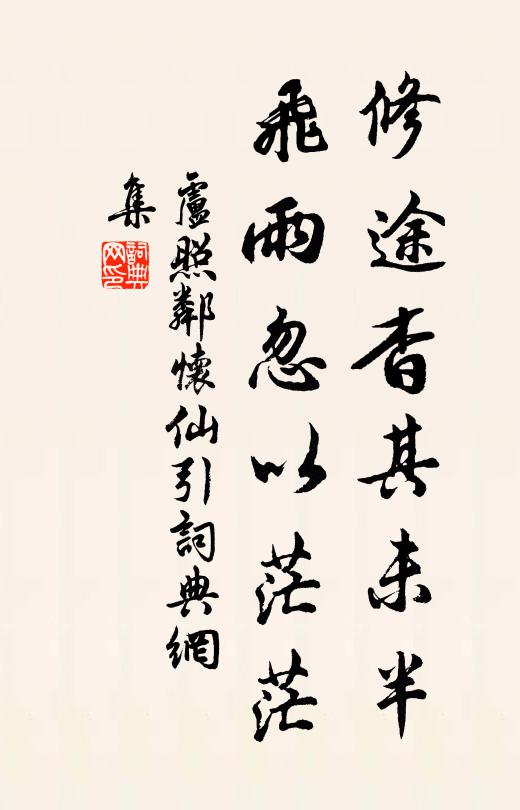 修途杳其未半
飛雨忽以茫茫
盧照鄰懷仙引詞典網
集
詞典
网印